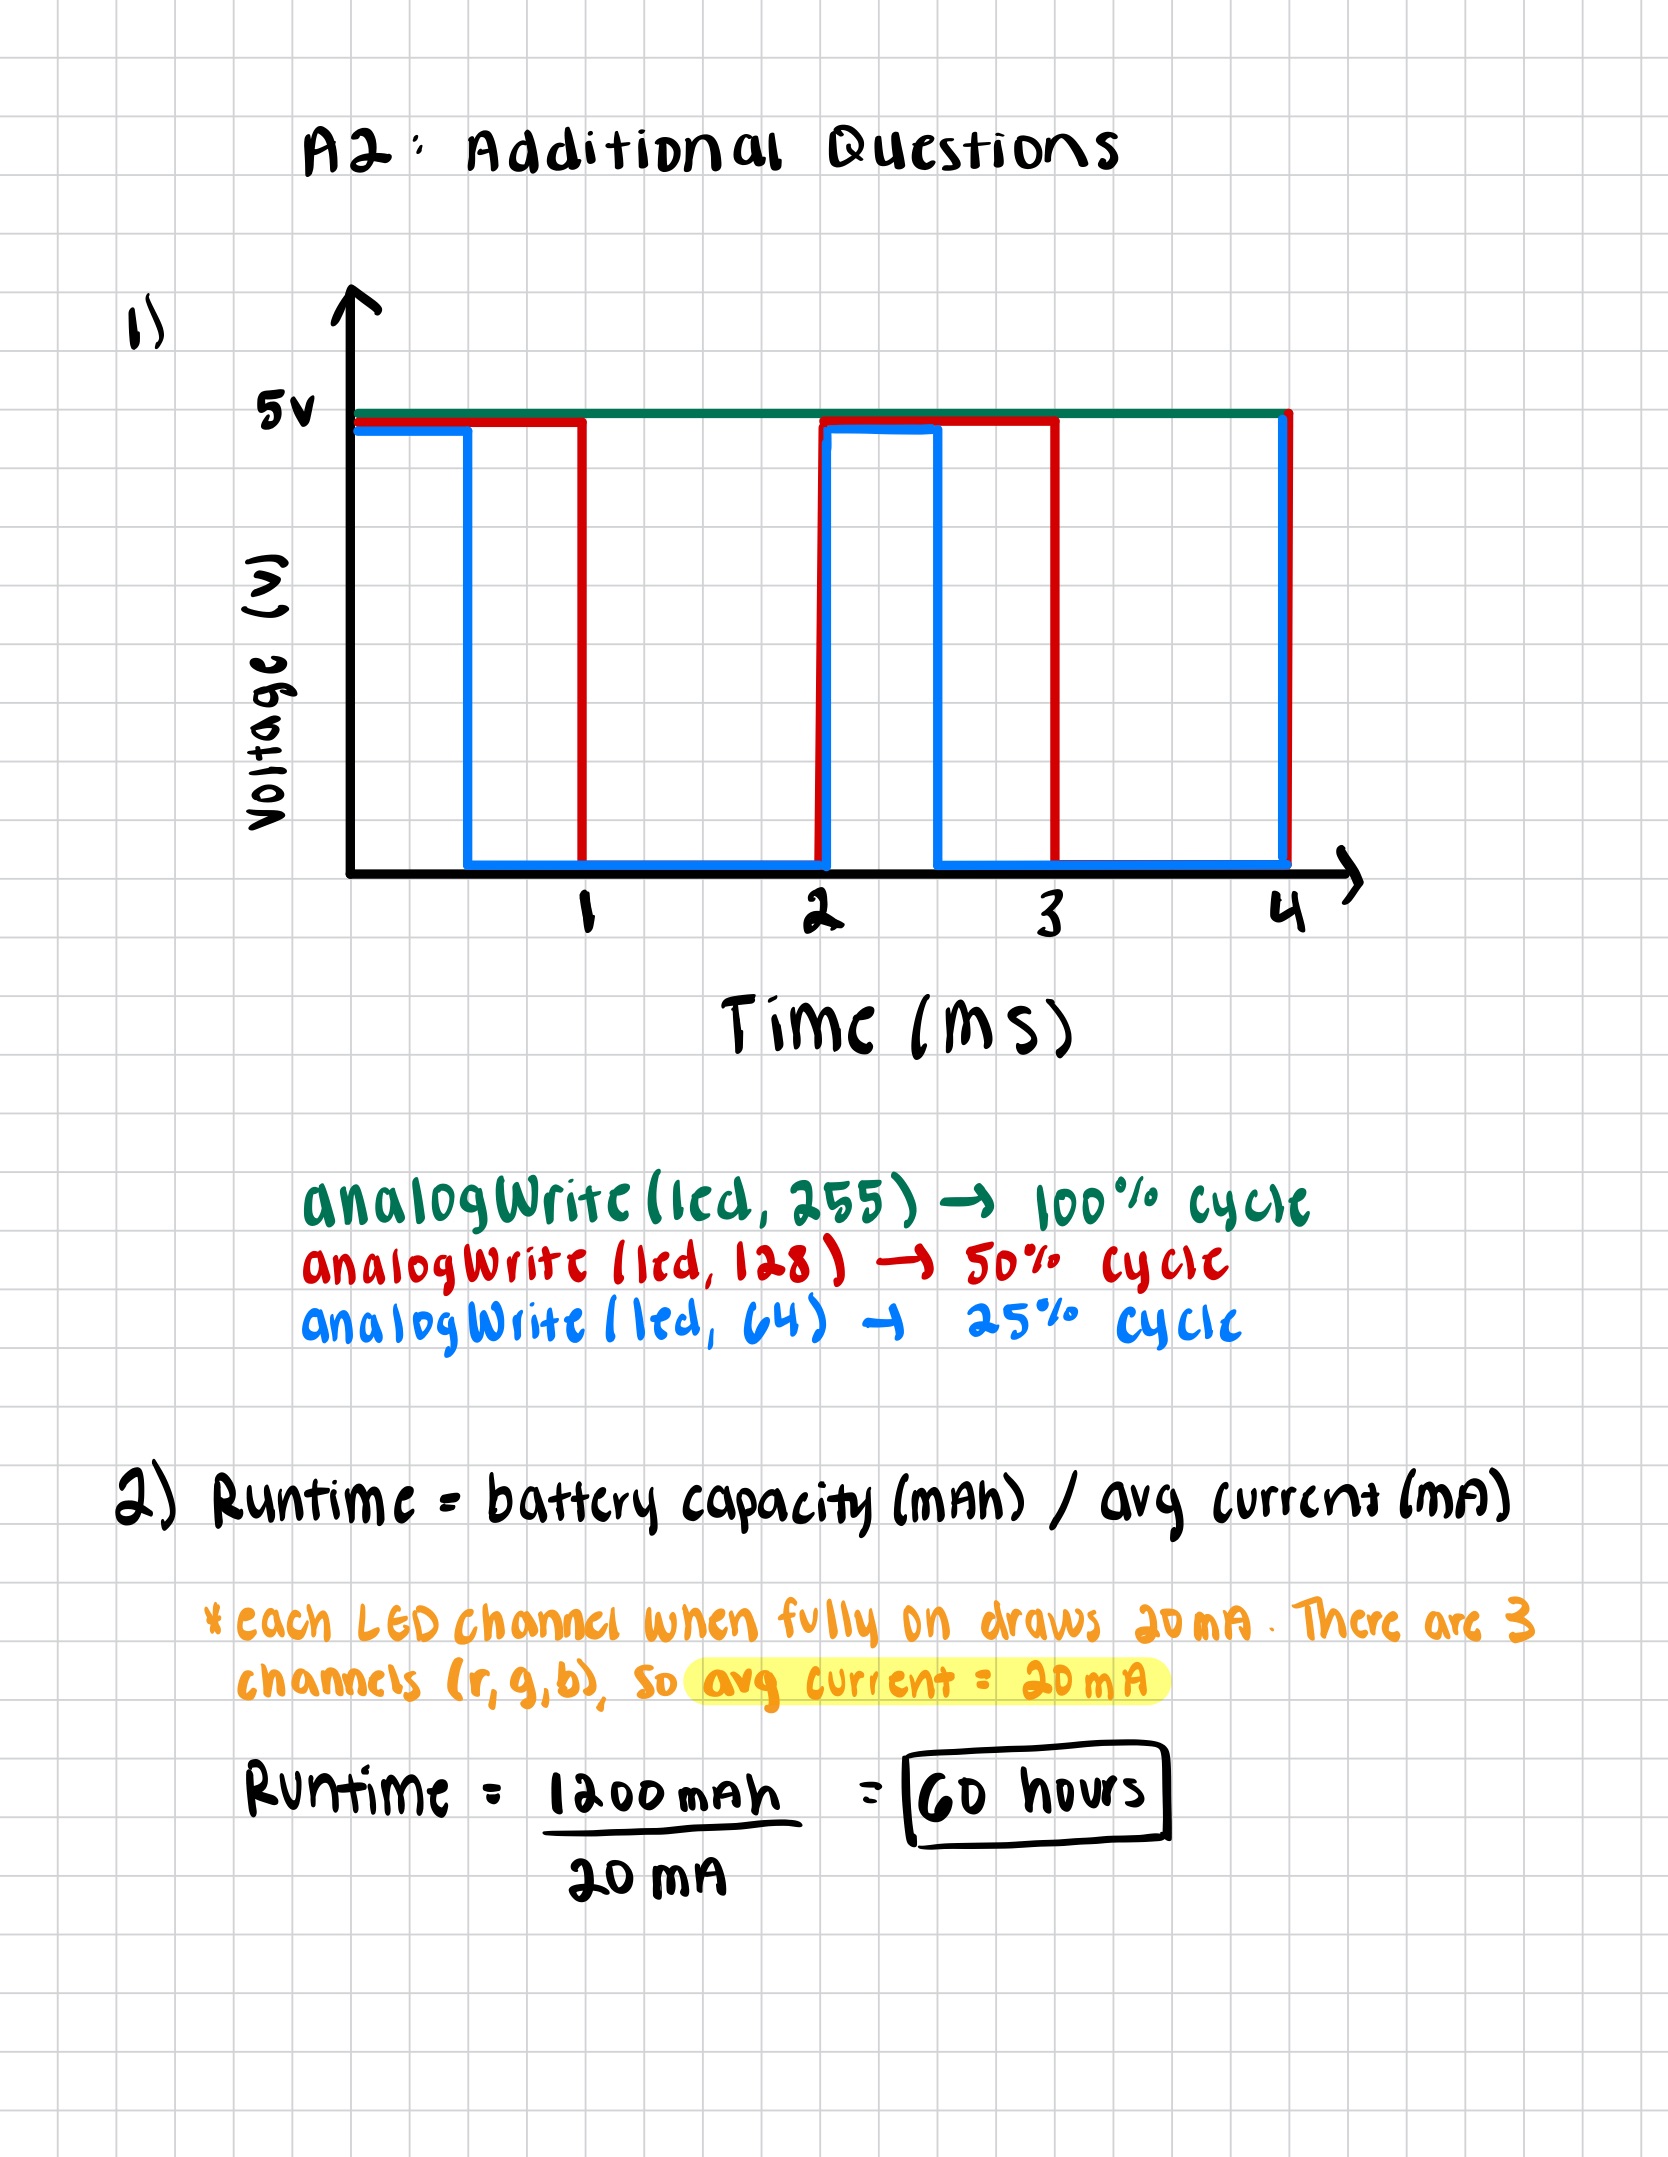 A2: Additional Questions
1)
5v
Voltage (V)
1 2 3 4
Time (ms)
analogWrite(led, 255) → 100% cycle
analogWrite (led, 128) → 50% cycle
analogWrite (led, 64) → 25% cycle
2) Runtime = battery capacity (mAh) / avg current (mA)
* each LED channel when fully on draws 20mA. There are 3
channels (r,g,b), so avg current = 20mA
Runtime = 1200mAh = 60 hours
20mA